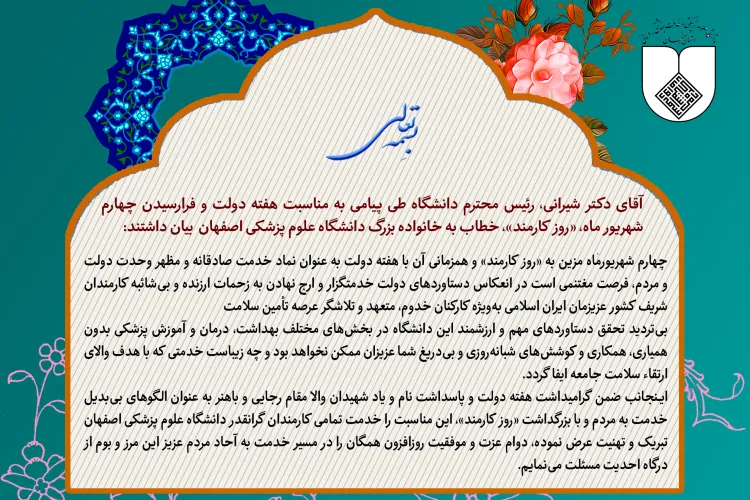 بسمه تعالی
آقای دکتر شیرانی، رئیس محترم دانشگاه طی پیامی به مناسبت هفته دولت و فرارسیدن چهارم
شهریور ماه، «روز کارمند»، خطاب به خانواده بزرگ دانشگاه علوم پزشکی اصفهان بیان داشتند:
چهارم شهریورماه مزین به «روز کارمند» و همزمانی آن با هفته دولت به عنوان نماد خدمت صادقانه و مظهر وحدت دولت
و مردم، فرصت مغتنمی است در انعکاس دستاوردهای دولت خدمتگزار و ارج نهادن به زحمات ارزنده و بی‌شائبه کارمندان
شریف کشور عزیزمان ایران اسلامی به‌ویژه کارکنان خدوم، متعهد و تلاشگر عرصه تأمین سلامت
بی‌تردید تحقق دستاوردهای مهم و ارزشمند این دانشگاه در بخش‌های مختلف بهداشت، درمان و آموزش پزشکی بدون
همیاری، همکاری و کوشش‌های شبانه‌روزی و بی‌دریغ شما عزیزان ممکن نخواهد بود و چه زیباست خدمتی که با هدف والای
ارتقاء سلامت جامعه ایفا گردد.
اینجانب ضمن گرامیداشت هفته دولت و پاسداشت نام و یاد شهیدان والا مقام رجایی و باهنر به عنوان الگوهای بی‌بدیل
خدمت به مردم و با بزرگداشت «روز کارمند»، این مناسبت را خدمت تمامی کارمندان گرانقدر دانشگاه علوم پزشکی اصفهان
تبریک و تهنیت عرض نموده، دوام عزت و موفقیت روزافزون همگان را در مسیر خدمت به آحاد مردم عزیز این مرز و بوم از
درگاه احدیت مسئلت می‌نمایم.